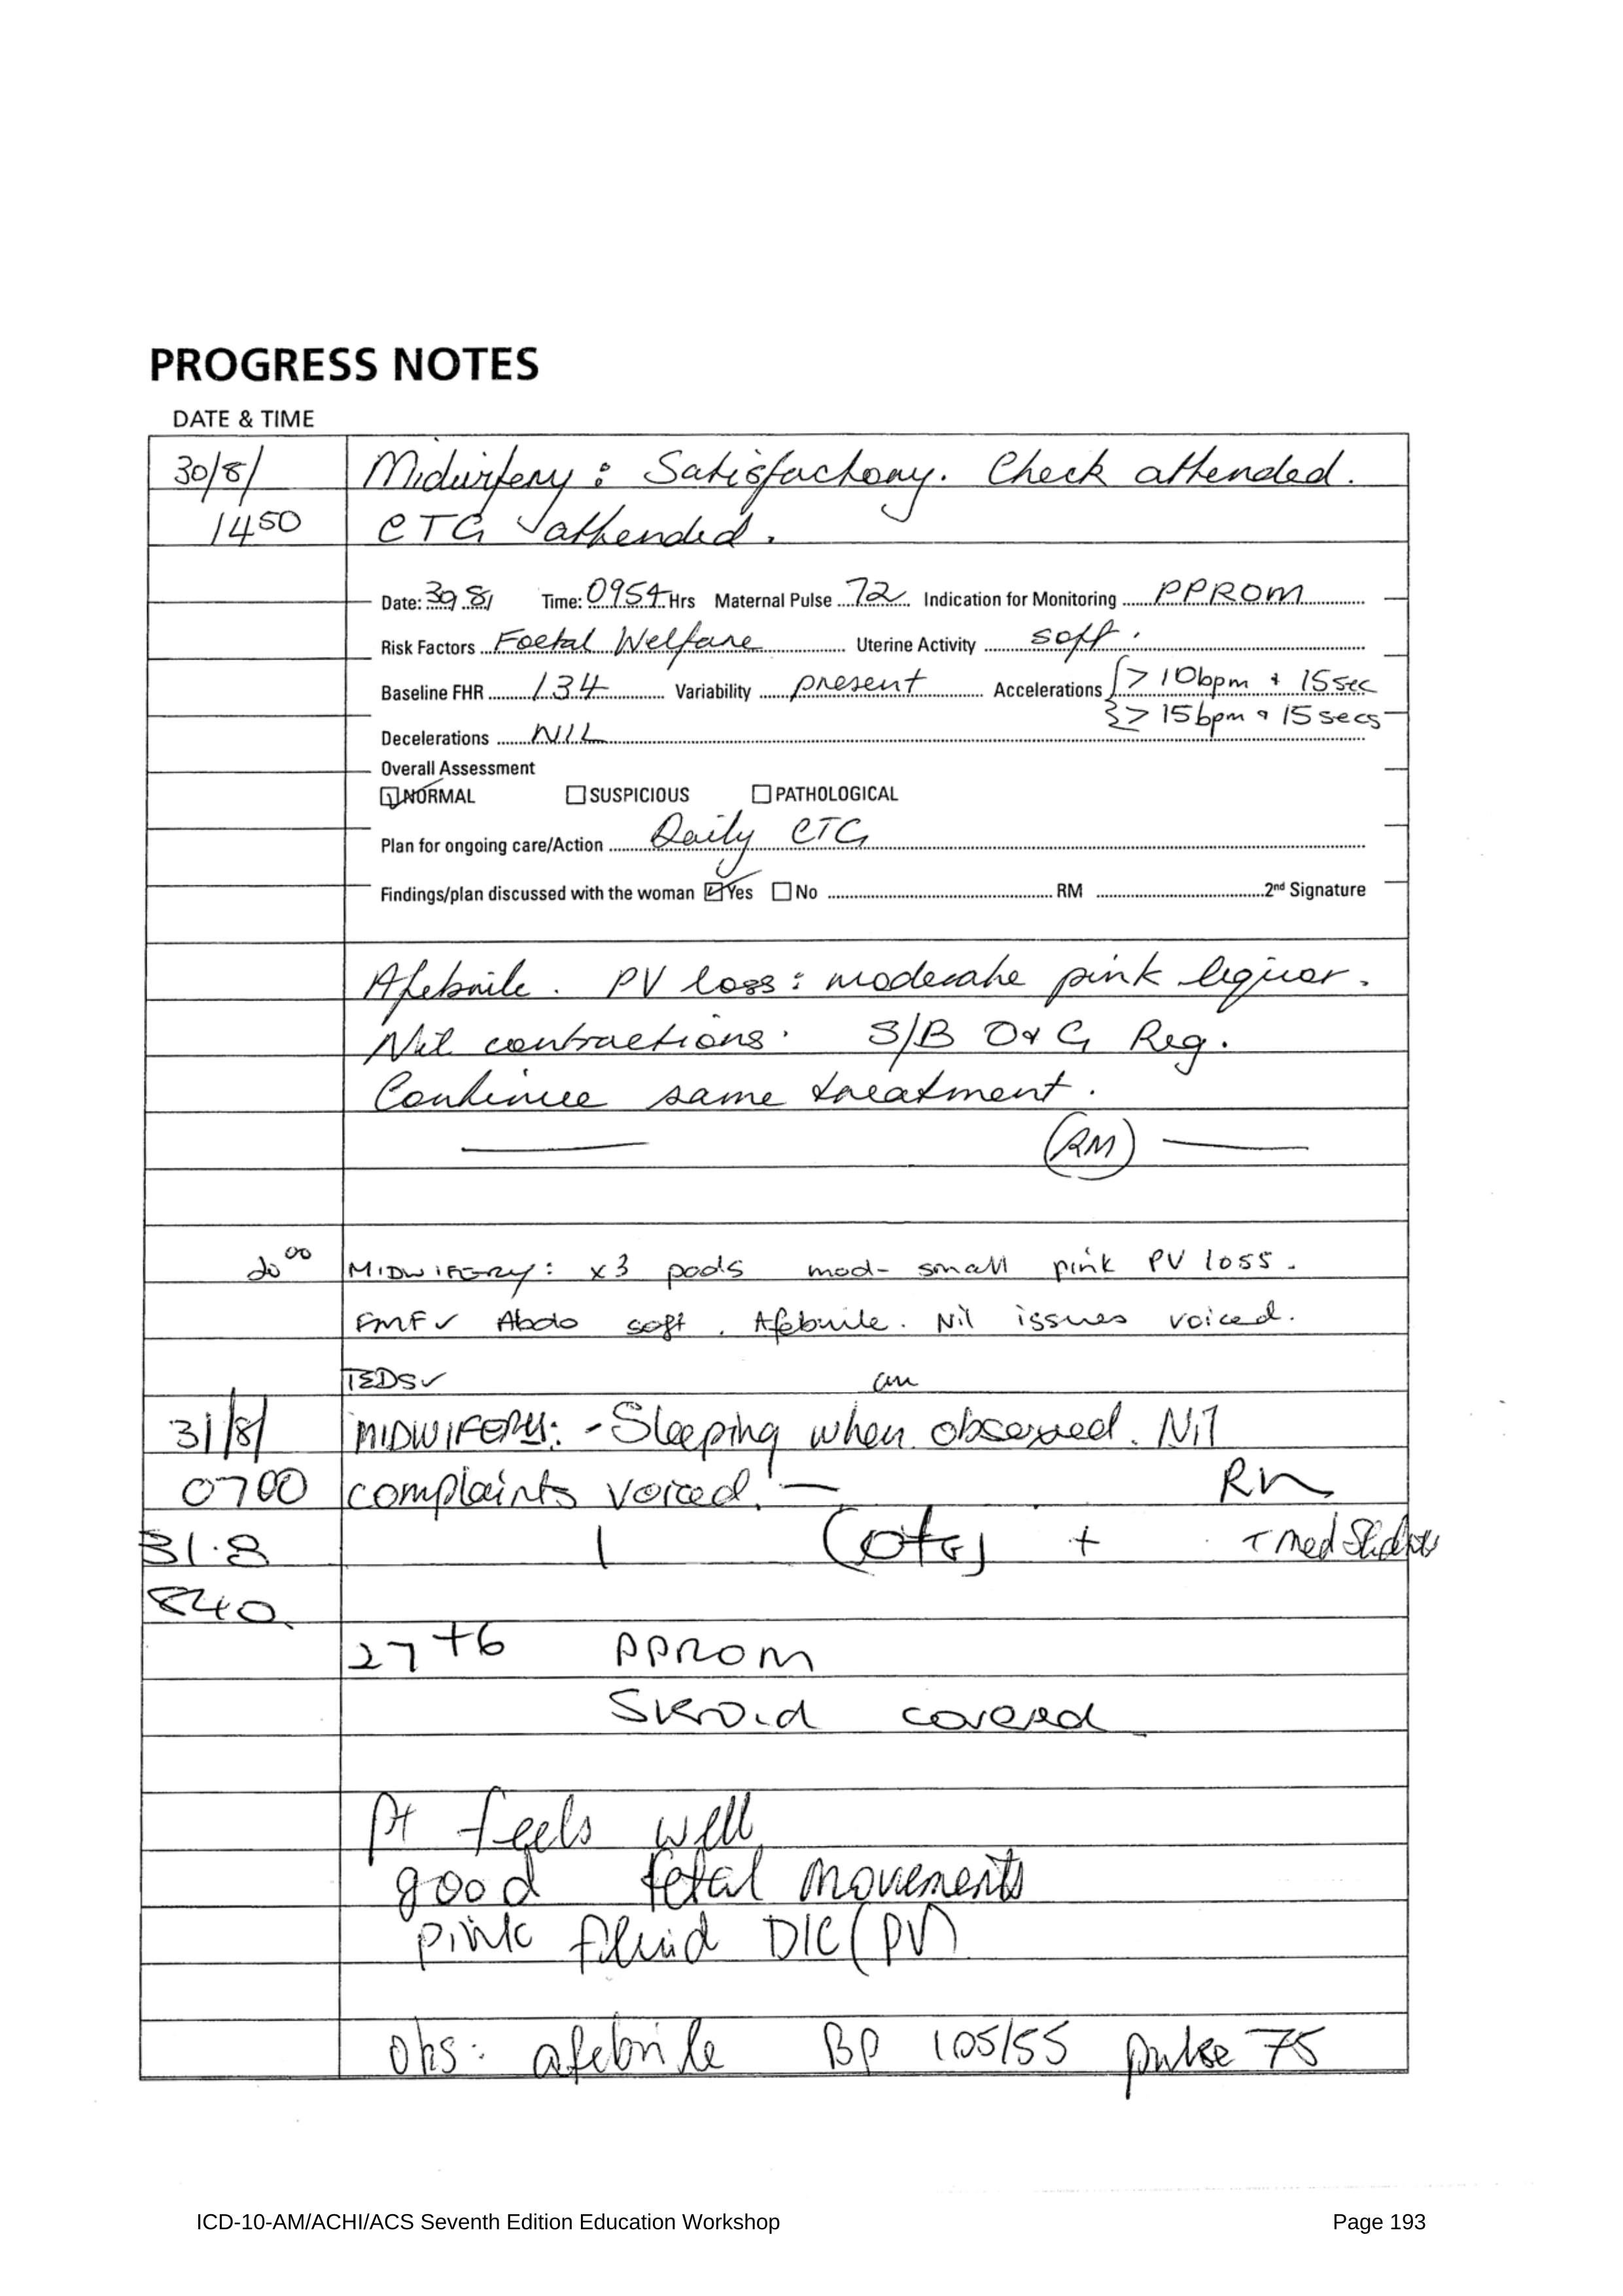 PROGRESS NOTES
DATE & TIME
30/8/ Midwifery : Satisfactory. Check attended.
1450 CTG attended.
Date: 30.8/ Time: 0954 Hrs Maternal Pulse 72 Indication for Monitoring PPROM
Risk Factors Foetal Welfare Uterine Activity soft.
Baseline FHR 134 Variability present Accelerations { > 10bpm + 15sec
> 15bpm + 15secs
Decelerations NIL
Overall Assessment
NORMAL SUSPICIOUS PATHOLOGICAL
Plan for ongoing care/Action Daily CTG
Findings/plan discussed with the woman Yes No RM 2nd Signature
Afebrile. PV loss: moderate pink liquor.
Nil contractions. S/B O+G Reg.
Continue same treatment.
RM
2000 MIDWIFERY: x3 pads mod- small pink PV loss.
FMF✓ Abdo soft. Afebrile. Nil issues voiced.
TEDS✓
31/8/ MIDWIFERY: - Sleeping when observed. Nil
0700 complaints voiced. RM
31.8 (O+G) + + med Students
840
27+6 PPROM
Steroid covered
Pt feels well
good fetal movements
pink fluid D/C (PV)
Obs: afebrile BP 105/55 pulse 75
ICD-10-AM/ACHI/ACS Seventh Edition Education Workshop Page 193